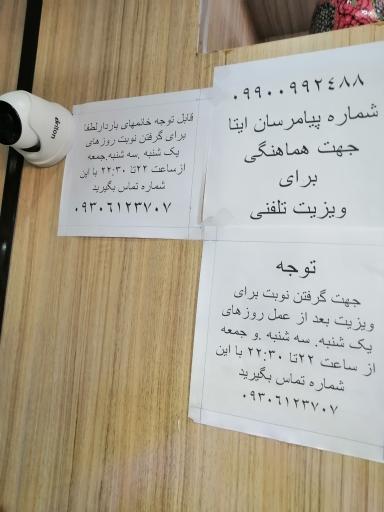 ۰۹۹۰۰۹۹۲۴۸۸
شماره پیامرسان ایتا
جهت هماهنگی
برای
ویزیت تلفنی
قابل توجه خانمهای باردارلطفا
برای گرفتن نوبت روزهای
یک شنبه .سه شنبه.جمعه
ازساعت ۲۲تا ۲۲:۳۰ با این
شماره تماس بگیرید
۰۹۳۰۶۱۲۳۷۰۷
توجه
جهت گرفتن نوبت برای
ویزیت بعد از عمل روزهای
یک شنبه. سه شنبه .و جمعه
از ساعت ۲۲تا ۲۲:۳۰ با این
شماره تماس بگیرید
۰۹۳۰۶۱۲۳۷۰۷